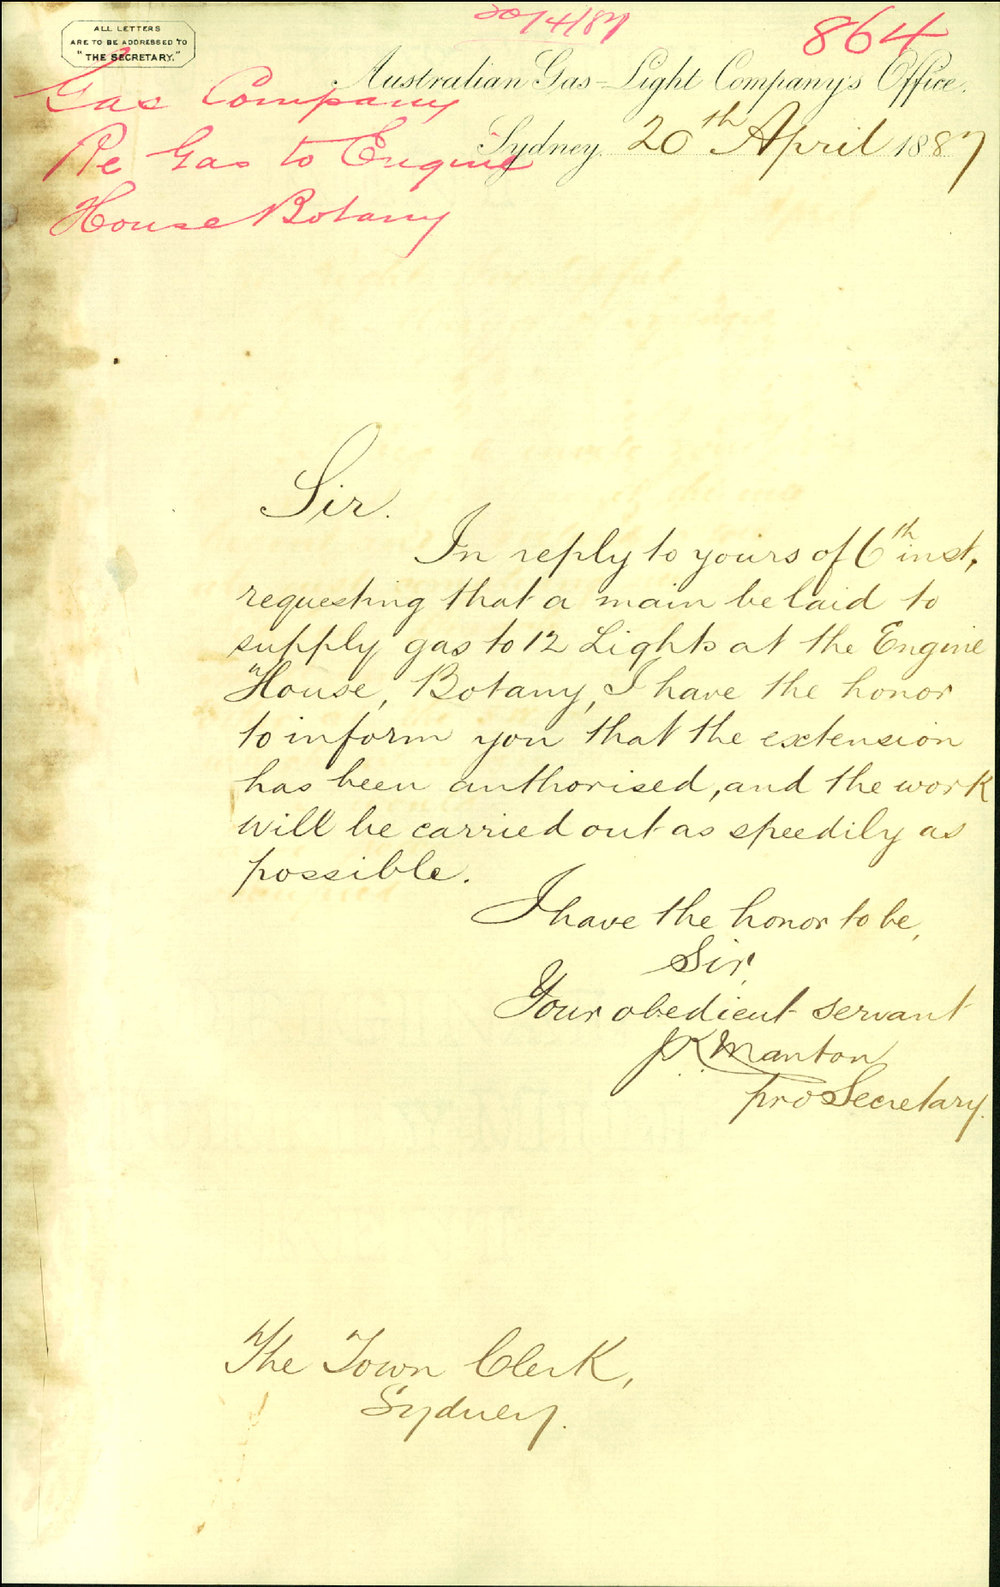 ALL LETTERS
ARE TO BE ADDRESSED TO
"THE SECRETARY."
20/4/87
864
Gas Company
Re Gas to Engine
House Botany
Australian Gas-Light Company's Office.
Sydney 20th April 1887
Sir.
In reply to yours of 6th inst,
requesting that a main be laid to
supply gas to 12 Lights at the Engine
House, Botany, I have the honor
to inform you that the extension
has been authorised, and the work
will be carried out as speedily as
possible.
I have the honor to be,
Sir,
Your obedient servant
J.K. Manton
pro Secretary.
The Town Clerk,
Sydney.